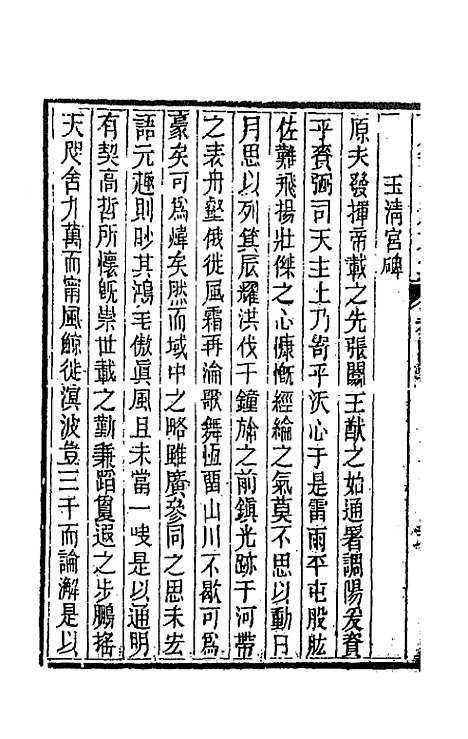 玉淸宮碑
原夫發揮帝載之先張闢王猷之始通署調陽爰資
乎賚弼司天主土乃寄乎沃心于是雷雨平屯股肱
佐難飛揚壯傑之心慷慨經綸之氣莫不思以動日
月思以列箕辰耀洪伐于鐘旂之前鎭光跡于河帶
之表舟壑俄徙風霜再淪歌舞恆畱山川不歇可爲
豪矣可爲煒矣然而域中之略雖廣參同之思未宏
語元趣則眇其鴻毛傲眞風且未當一吷是以通明
有契高哲所懷旣崇世載之勤兼蹈賔遐之步鵬搖
天咫舍九萬而甯風鯨徙溟波豈三千而論澥是以